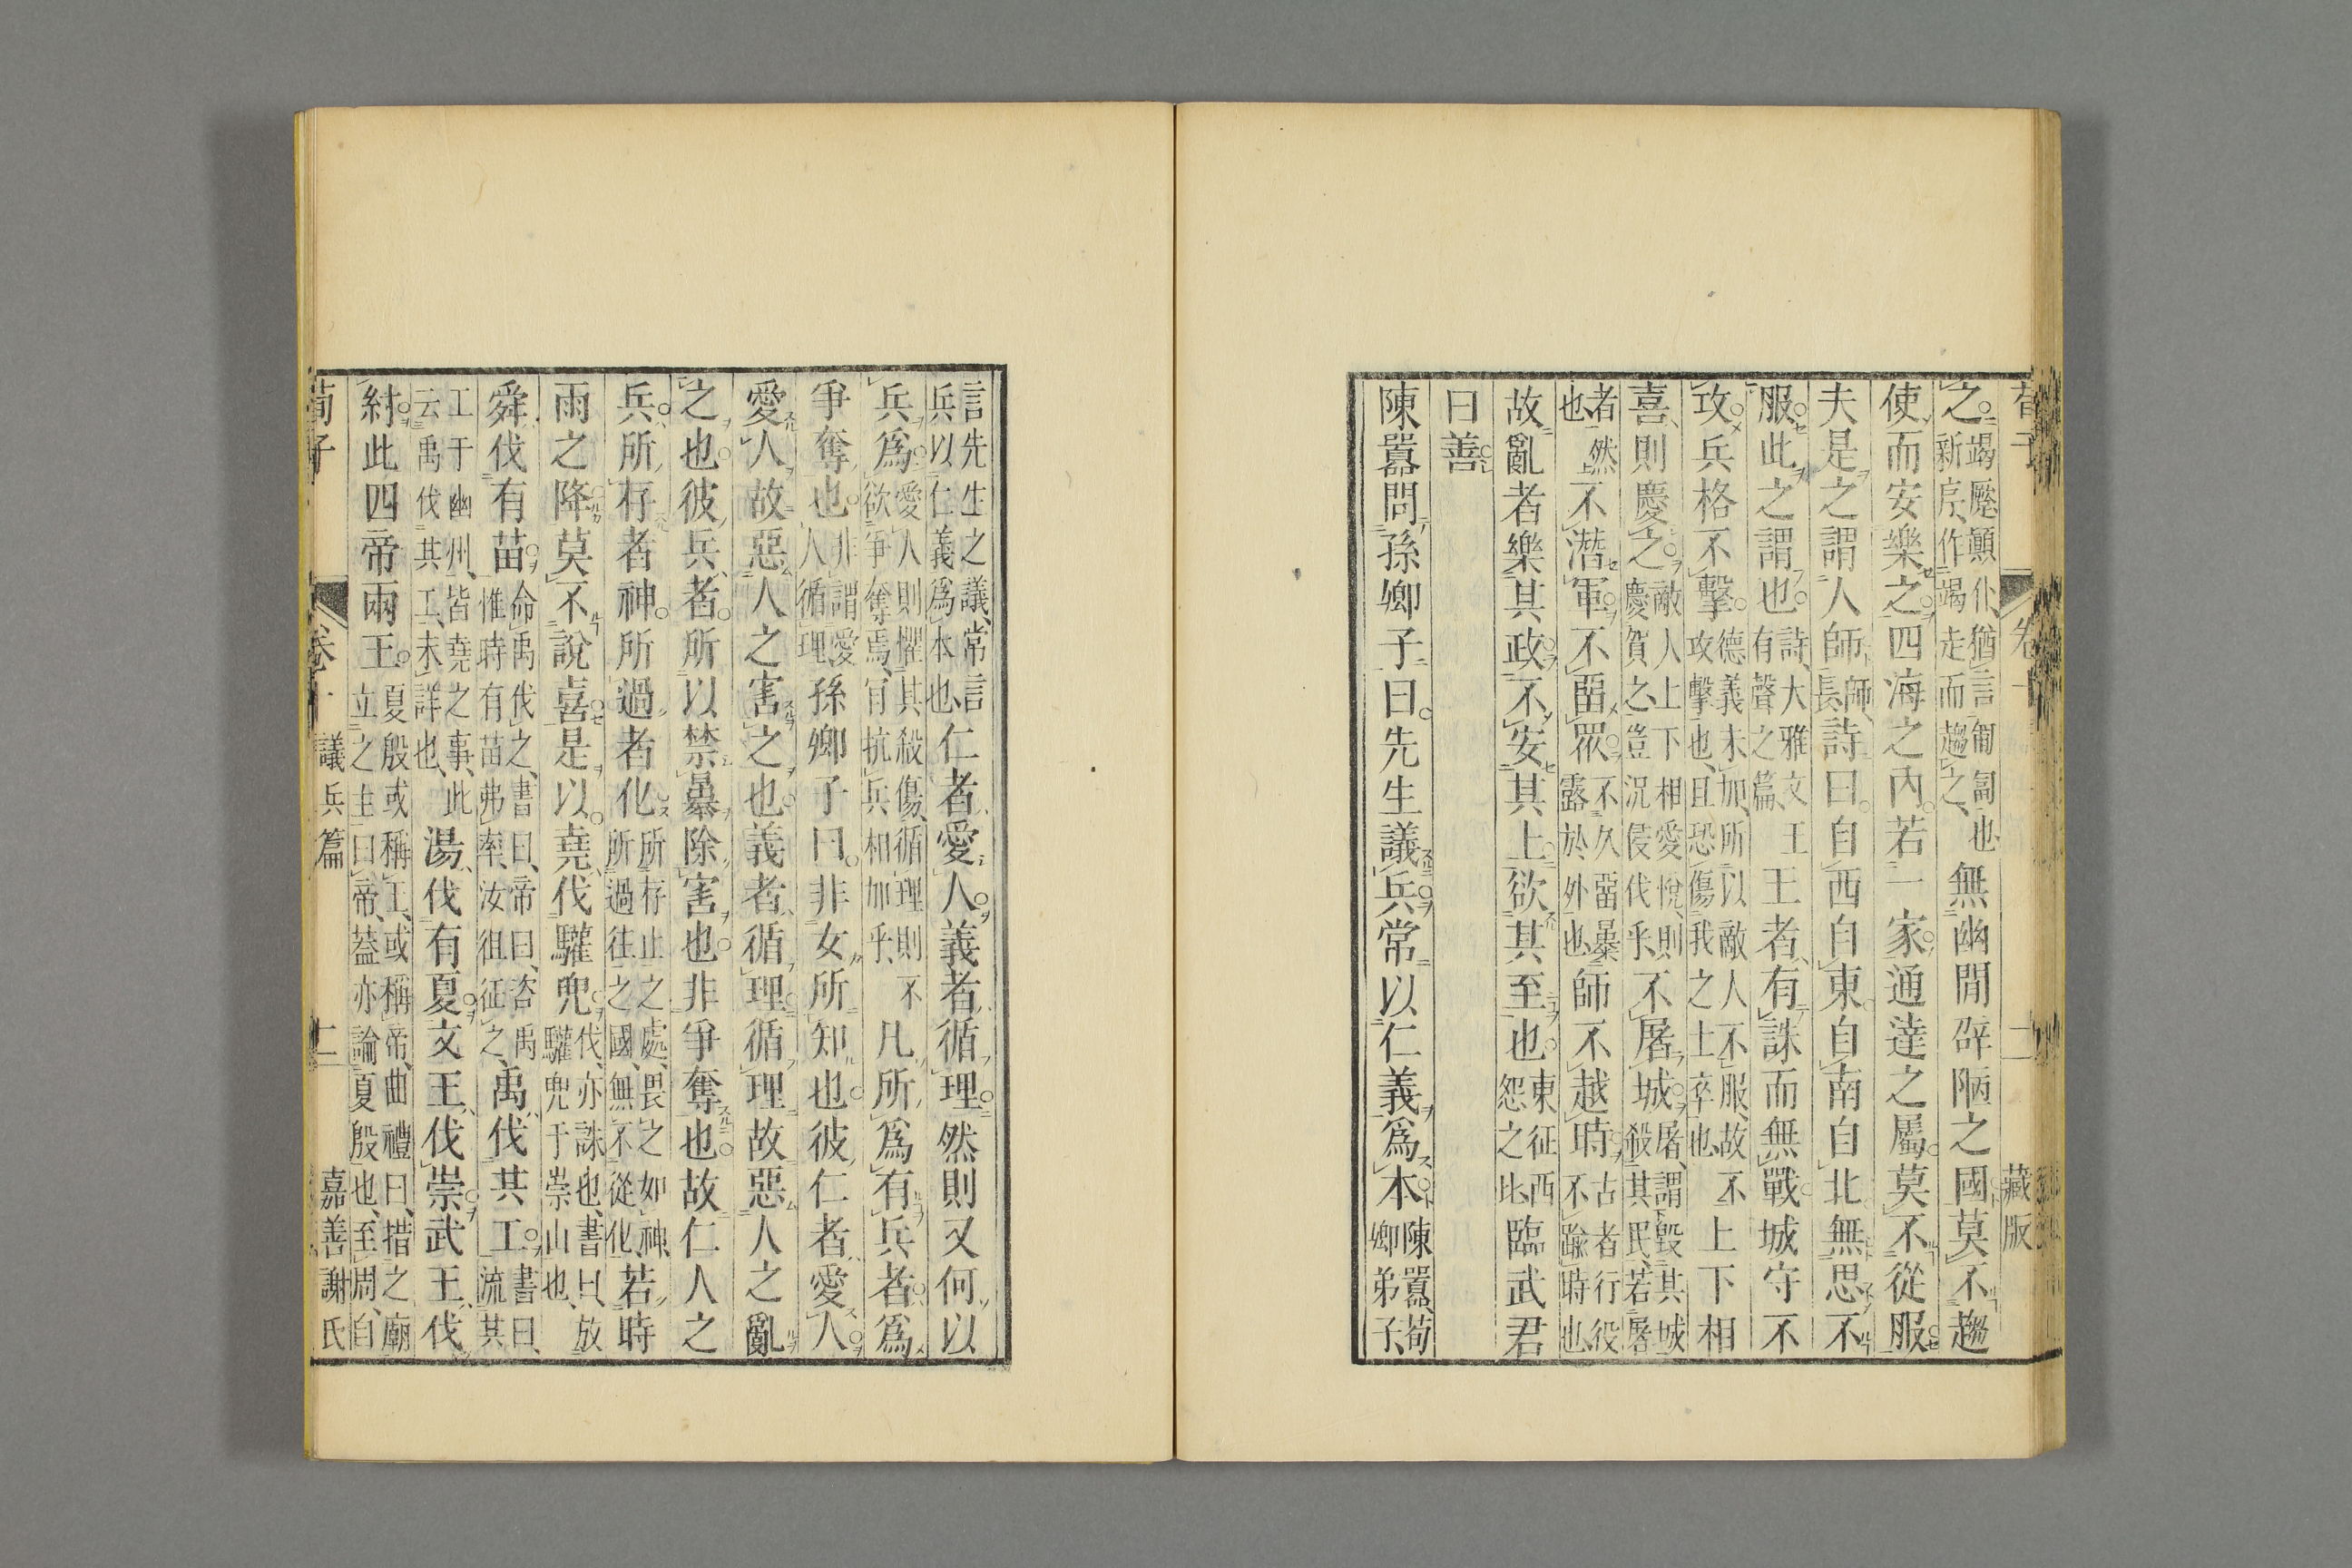 荀子 卷十 二 藏版
之竭蹷顛仆、猶言匍匐也新序、作竭走而趨之、無幽閒辟陋之國莫不趨
使而安樂之四海之內若一家通達之屬莫不從服
夫是之謂人師師、長、詩曰自西自東自南自北無思不
服此之謂也詩、大雅文王有聲之篇、王者有誅而無戰城守不
攻兵格不擊德義未加、所以敵人不服、故不攻擊也、且恐傷我之士卒也、上下相
喜則慶之敵人上下相愛悅、則慶賀之、豈況侵伐乎、不屠城屠、謂毀其城殺其民、若屠
者然也、不潛軍不畱眾不久畱暴露於外也、師不越時古者行役不踰時也、
故亂者樂其政不安其上欲其至也東征西怨之比、臨武君
曰善
陳囂問孫卿子曰先生議兵常以仁義爲本陳囂、荀卿弟子、
言先生之議、常言兵以仁義爲本也、仁者愛人義者循理然則又何以
兵爲愛人則懼其殺傷、循理則不欲爭奪焉、肎抗兵相加乎、凡所爲有兵者爲
爭奪也非謂愛人循理孫卿子曰非女所知也彼仁者愛人
愛人故惡人之害之也義者循理循理故惡人之亂
之也彼兵者所以禁暴除害也非爭奪也故仁人之
兵所存者神所過者化所存止之處、畏之如神、所過往之國、無不從化、若時
雨之降莫不說喜是以堯伐驩兜伐、亦誅也、書曰、放驩兜于崇山也、
舜伐有苗命禹伐之、書曰、帝曰、咨禹惟時有苗弗率、汝徂征之、禹伐共工書曰、流共
工于幽州、皆堯之事、此云禹伐共工、未詳也、湯伐有夏文王伐崇武王伐
紂此四帝兩王夏殷或稱王、或稱帝、曲禮曰、措之廟立之主曰帝、蓋亦論夏殷也、至周、自
荀子 卷十 議兵篇 十二 嘉善謝氏